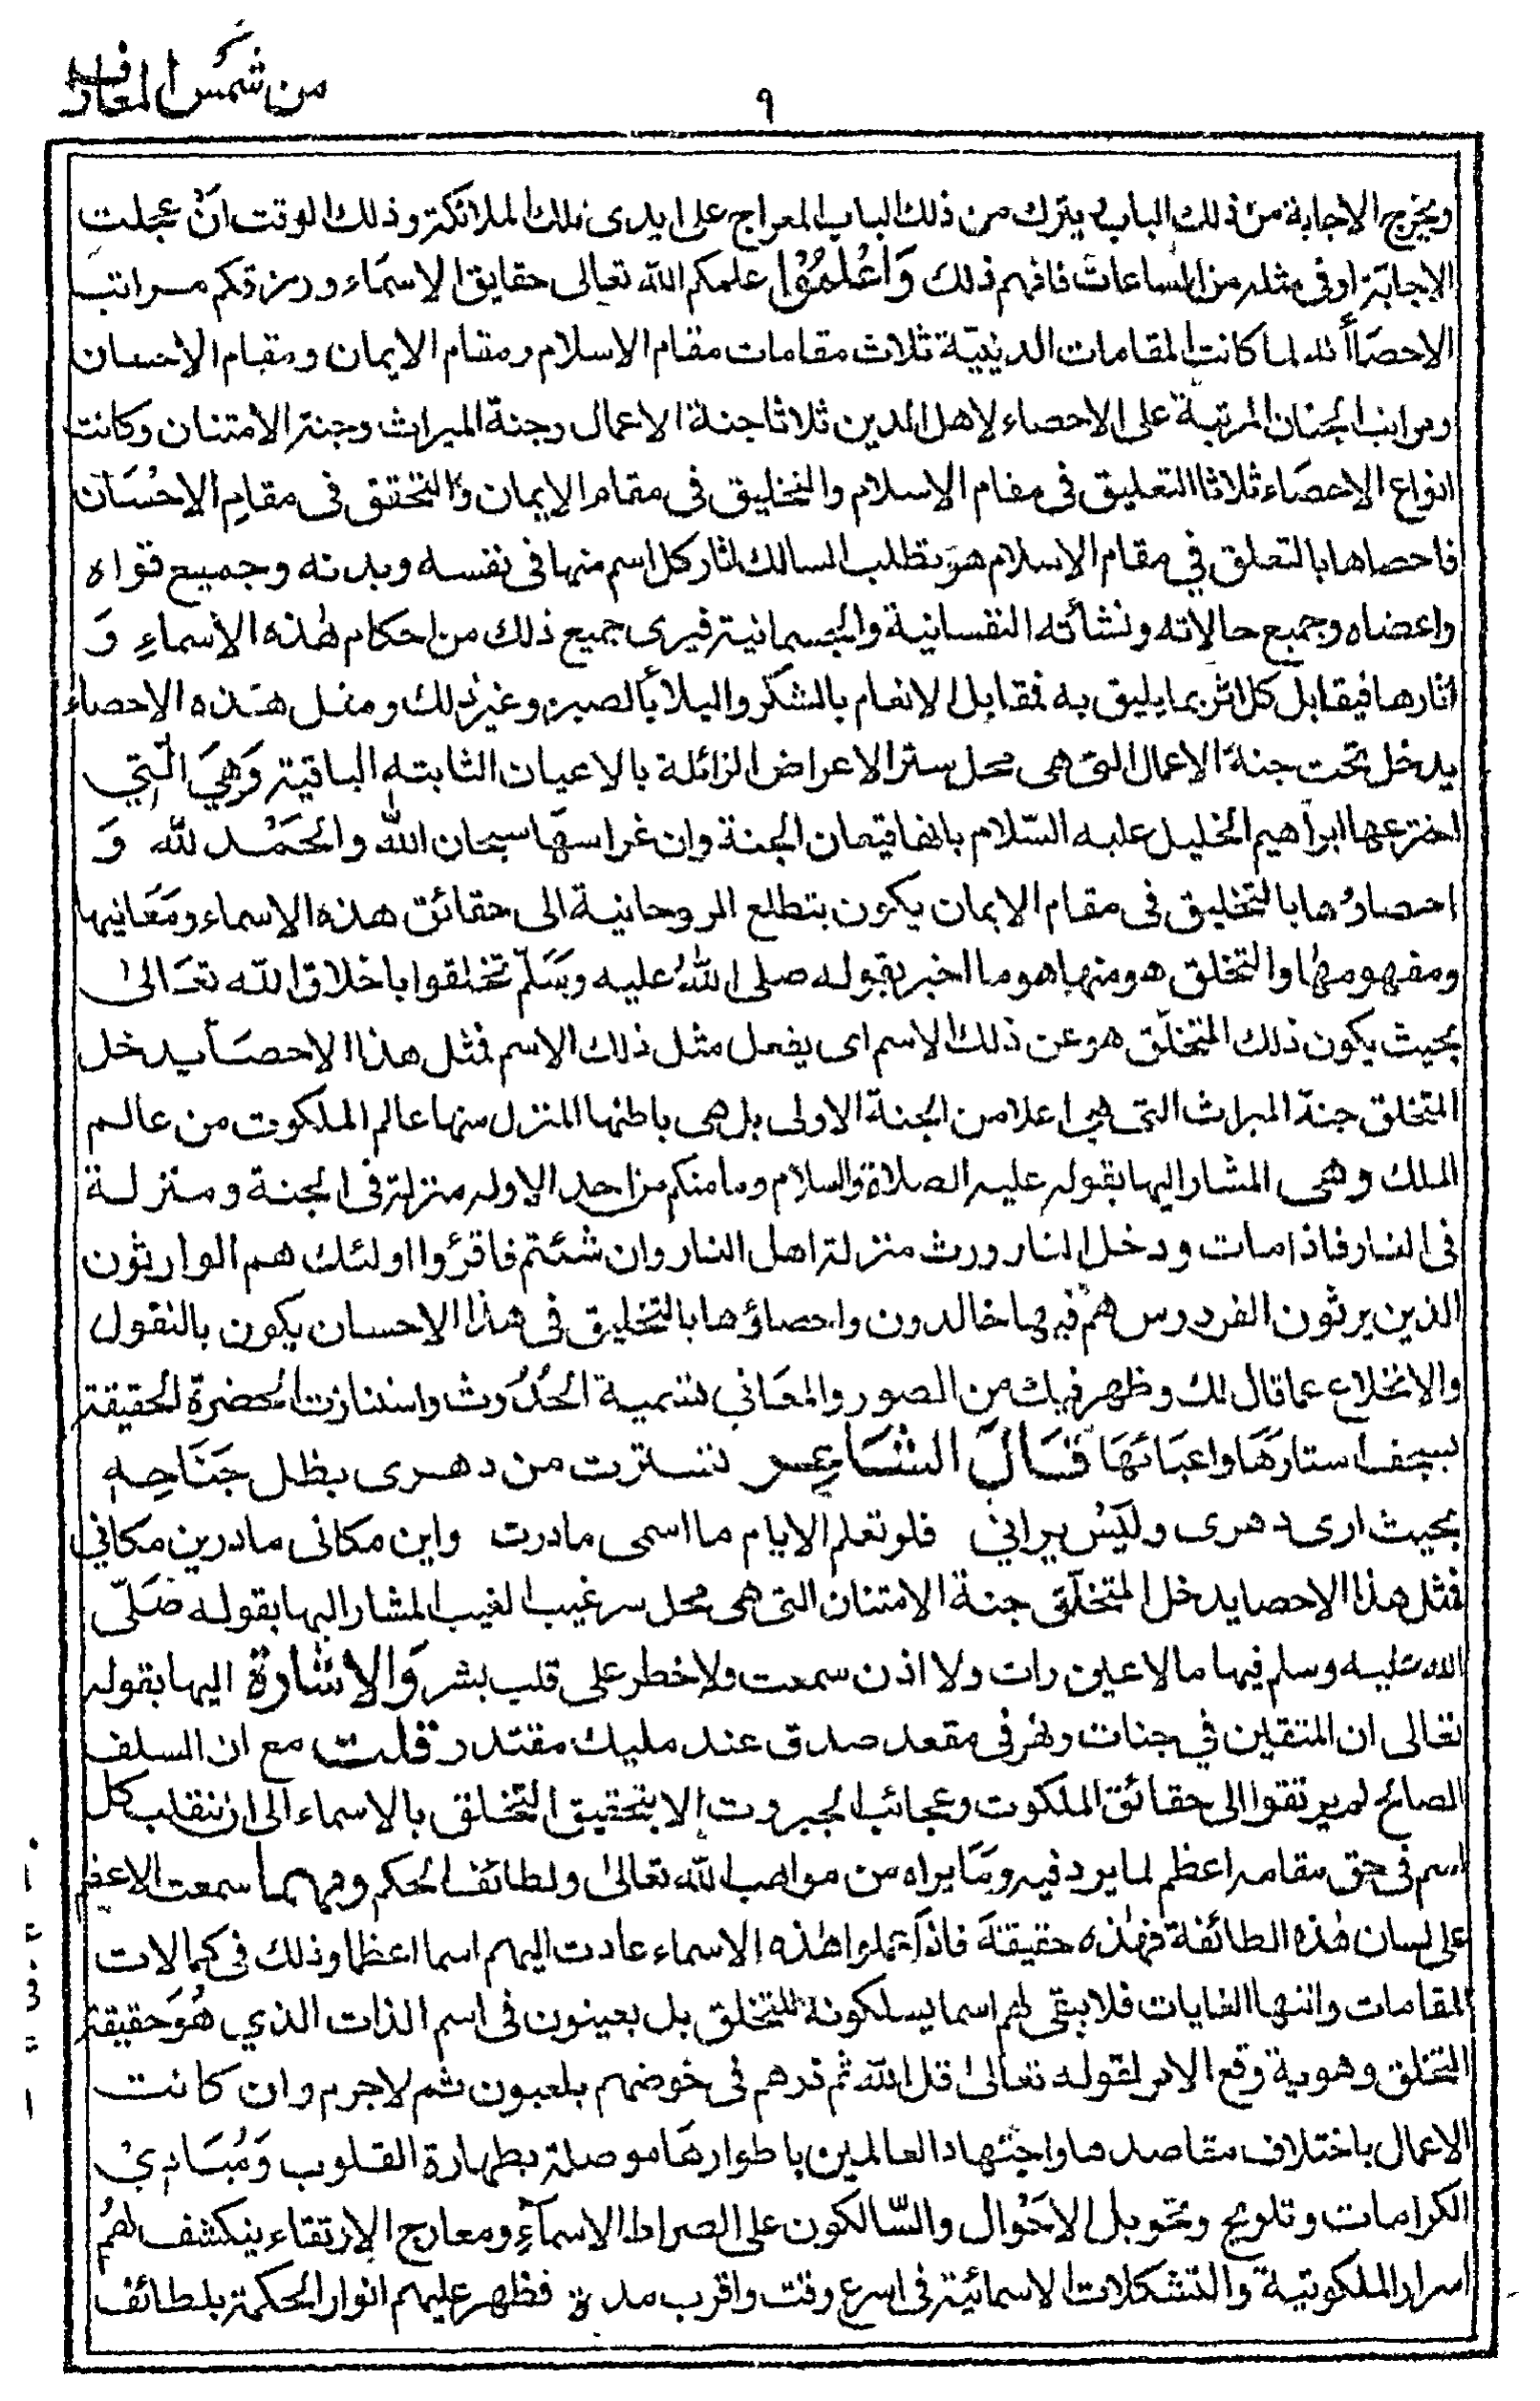 من شمس المعارف
٩
ويخرج الاجابة من ذلك الباب يترك من ذلك الباب المعراج على ايدى تلك الملائكة وذلك الوقت ان عجلت
الاجابة او فى مثله من الساعات فافهم ذلك وَاعْلمُوْا علمكم الله تعالى حقايق الاسماء ورزقكم مراتب
الاحصاأنه لما كانت المقامات الدينيّة ثلاث مقامات مقام الاسلام ومقام الايمان ومقام الاحسان
ومراتب الجنان المرتبة على الاحصاء لاهل الدين ثلاثا جنة الاعمال وجنة الميراث وجنة الامتنان وكانت
انواع الاحصاء ثلاثا التعليق فى مقام الاسلام والتخليق فى مقام الايمان والتحقق فى مقام الاحْسَان
فاحصاها بالتعلق في مقام الاسلام هو تطلب السالك اثار كل اسم منها فى نفسه وبدنه وجميع قواه
واعضاه وجميع حالاته ونشأته النفسانية والجسمانية فيرى جميع ذلك من احكام هذه الاسماءِ وَ
اثارها فيقابل كل اثر بما يليق به فمقابل الانعام بالشكر والبلأ بالصبر وغير ذلك ومثل هذه الاحصاء
يدخل تحت جنة الاعمال التى هى محل ستر الاعراض الزائلة بالاعيان الثابته الباقية وَهيَ الّتي
اخترعها ابراهيم الخليل عليه السّلام بانها قيعان الجنة وان غراسها سبحان الله والحَمْد لله وَ
احصاؤها بالتخليق فى مقام الايمان يكون بتطلع الروحانية الى حقائق هذه الاسماء ومَعَانيها
ومفهومها والتخلق هو منها هو ما اخبر بقوله صلى اللهُ عليه وسَلّم تخلقوا باخلاق الله تعَالىٰ
بحيث يكون ذلك المتخلّق هو عن ذلك الاسم اى يفعل مثل ذلك الاسم فمثل هذا الاحصأ يدخل
المتخلق جنة الميراث التى هى اعلا من الجنة الاولى بل هى باطنها المنزل منها عالم الملكوت من عالم
الملك وهى المشار اليها بقوله عليه الصلاة والسلام وما منكم من احد الا وله منزلة فى الجنة ومنزلة
فى النار فاذا مات ودخل النار ورث منزلة اهل النار وان شئتم فاقرؤا اولئك هم الوارثون
الذين يرثون الفردوس هم فيها خالدون واحصاؤها بالتخليق فى هذا الاحسان يكون بالنقول
والانخلاع عما قال لك وظهر فيك من الصور والمعَاني تسمية الحدُوث واستنارت الحضرة الحقيقة
بسجف استارها واعبائها قَالَ الشَاعِر تسترت من دهرى بظل جَنَاحِه
بحيث ارى دهرى وليْس يراني فلو تعلم الايام ما اسمى مادرت واين مكانى مادرين مكاني
فمثل هذا الاحصا يدخل المتخلّق جنة الامتنان التى هى محل سر غيب الغيب المشار اليها بقوله صَلّى
الله عليه وسلم فيها ما لا عين رات ولا اذن سمعت ولا خطر على قلب بشر وَالاشارة اليها بقوله
تعالى ان المتقين في جنات ونهر فى مقعد صدق عند مليك مقتدر قلت مع ان السلف
الصالح لم يرتقوا الى حقائق الملكوت وعجائب الجبروت الا بتحقيق التخلق بالاسماء الى ان تنقلب كل
اسم فى حق مقامه اعظم لما يرد فيه وما يراه من مواهب الله تعالىٰ ولطائف الحكم ومهما سمعت الاعظم
على لسان هذه الطائفة فهذه حقيقة فاذا عملوا هذه الاسماء عادت اليهم اسما اعظا وذلك فى كمالات
المقامات وانتها الغايات فلا يبقى لهم اسما يسلكونه للتخلق بل يعينون فى اسم الذات الذي هُوَ حقيقة
التخلق وهوية وقع الامر لقوله تعالىٰ قل الله ثم ذرهم فى خوضهم يلعبون ثم لاجرم وان كانت
الاعمال باختلاف مقاصدها واجتهاد العالمين باطوارها موصلة بطهارة القلوب وَمُبَادِيْ
الكرامات وتلويح وتحويل الاحْوال والسّالكون على الصراط الاسماءِ ومعارج الارتقاء ينكشف لهُم
اسرار الملكوتية والتشكلات الاسمائية فى اسرع وقت واقرب مدة فظهر عليهم انوار الحكمة بلطائف